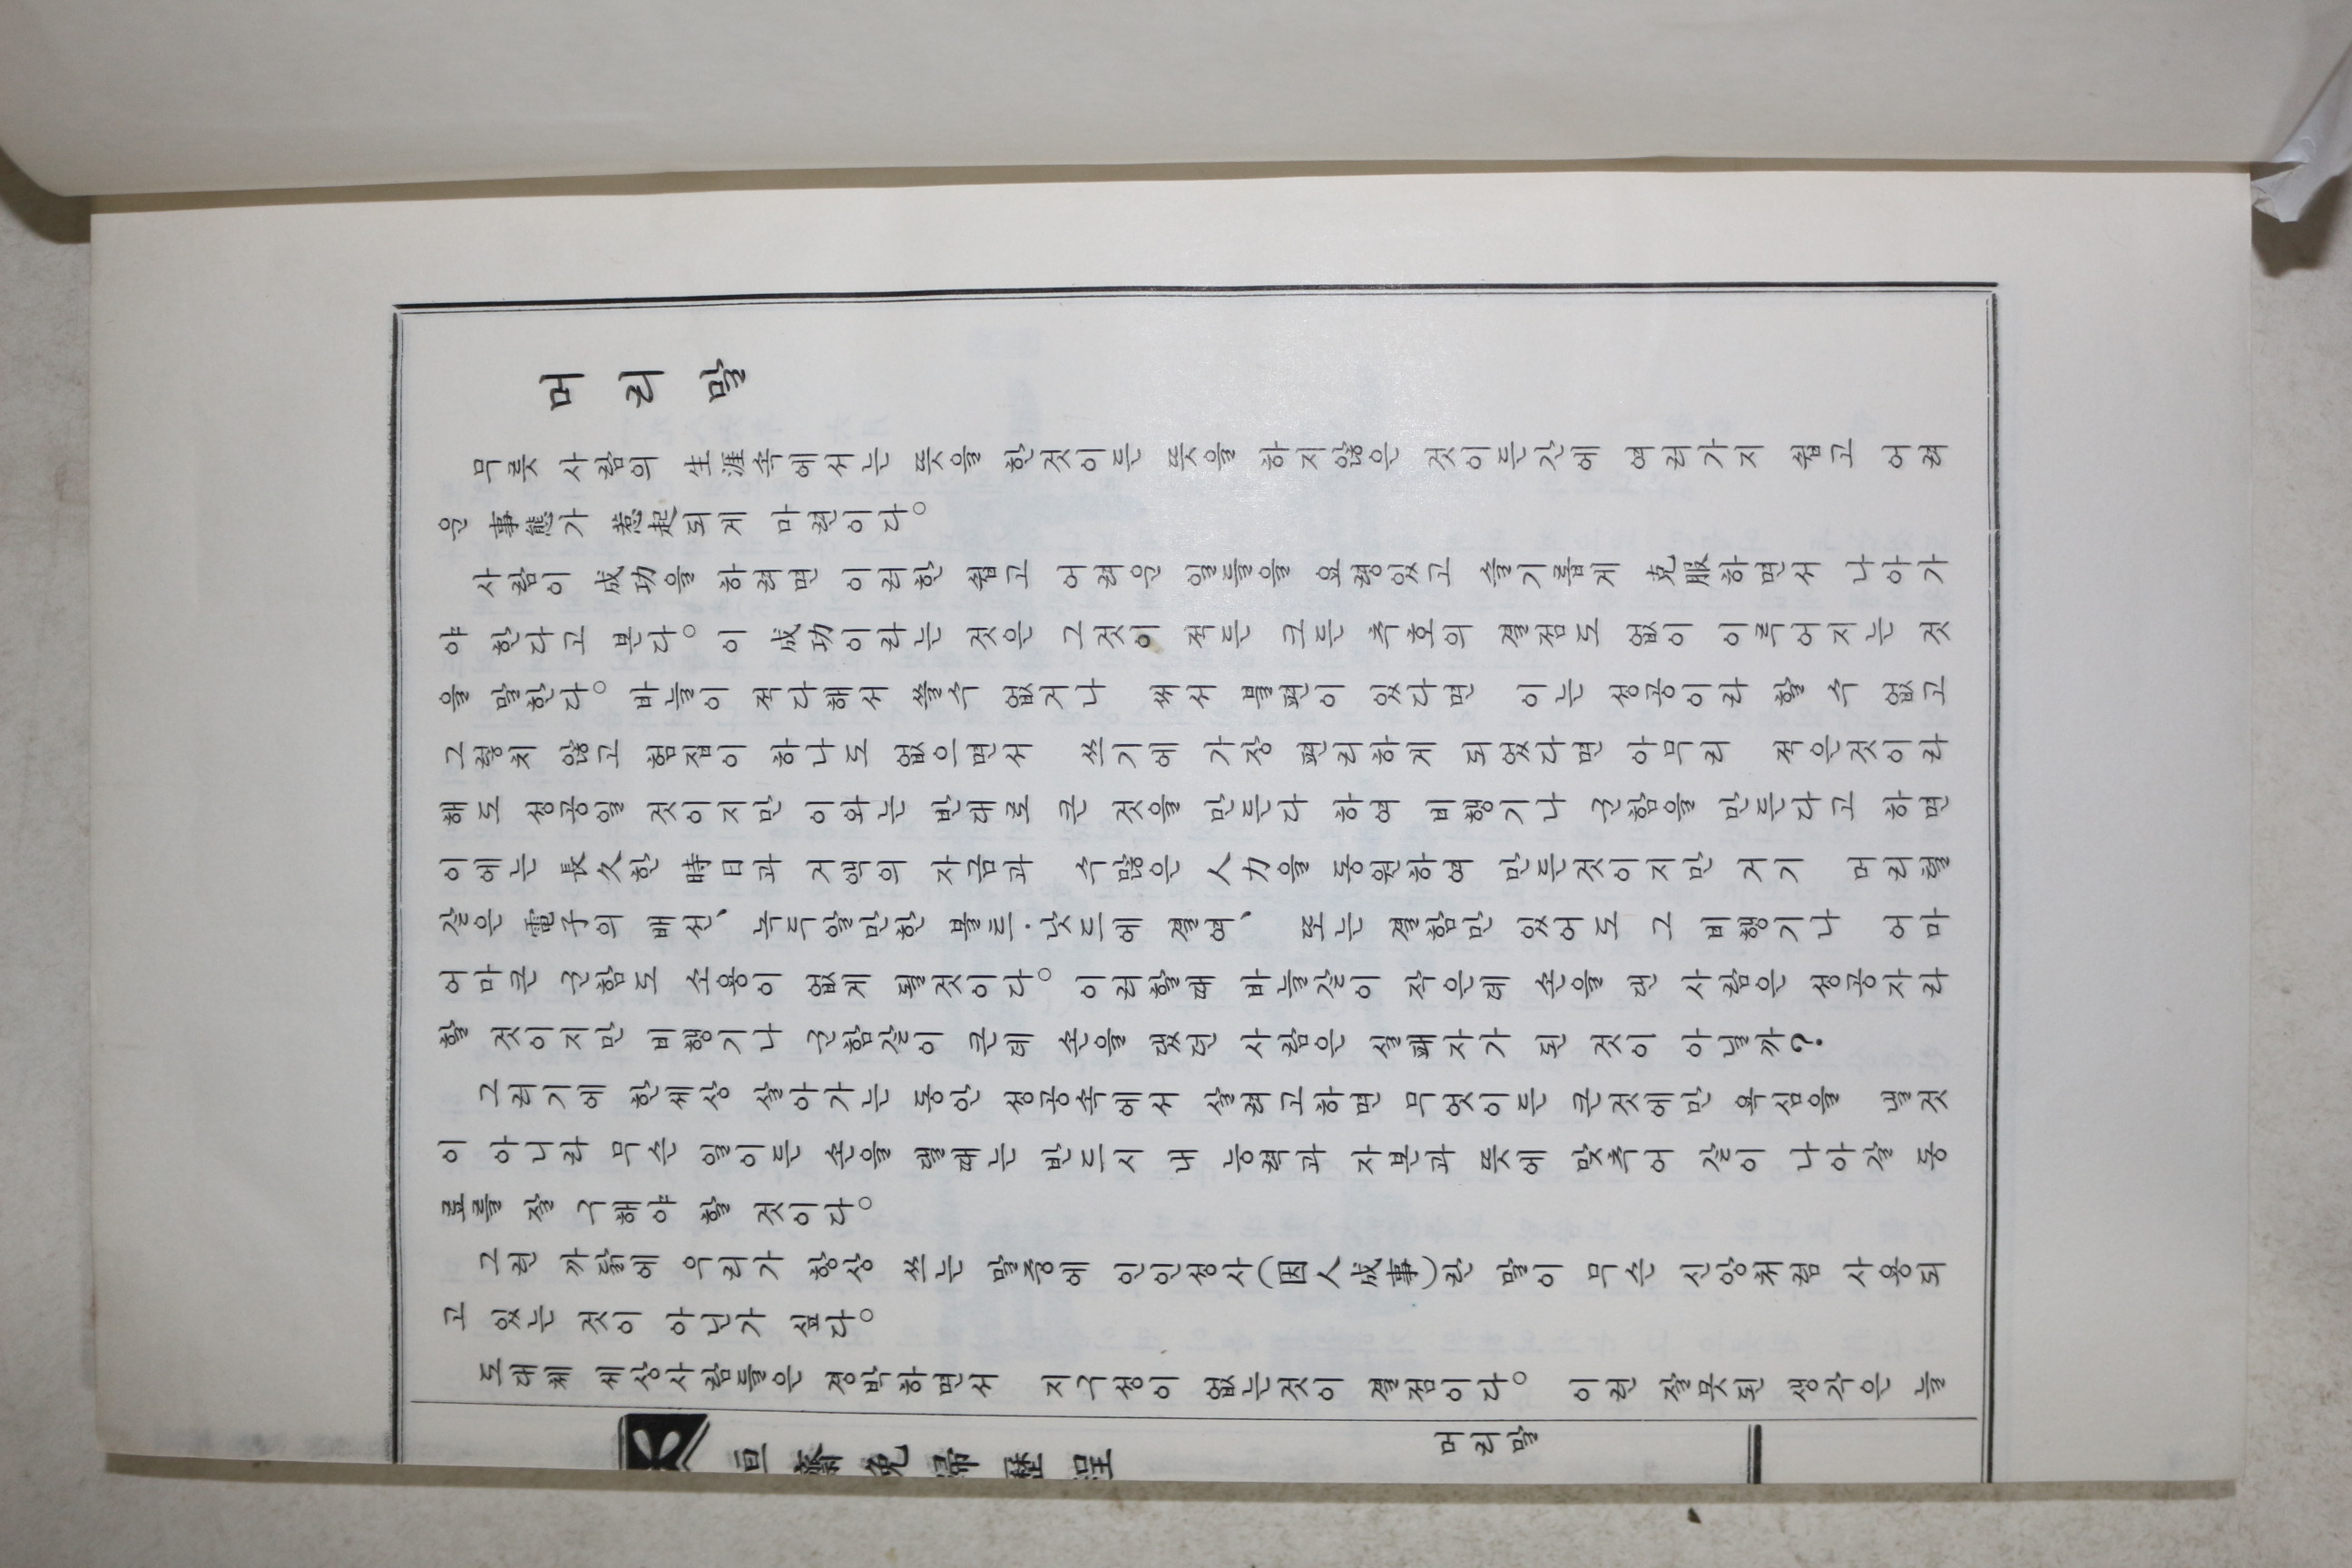 머리말
무릇 사람의 生涯속에서는 뜻을 한것이든 뜻을 하지않은 것이든간에 여러가지 쉽고 어려
운 事態가 惹起되게 마련이다。
사람이 成功을 하려면 이러한 쉽고 어려운 일들을 요령있고 슬기롭게 克服하면서 나아가
야 한다고 본다。 이 成功이라는 것은 그것이 적든 크든 추호의 결점도 없이 이루어지는 것
을 말한다。 바늘이 적다해서 쓸수 없거나 써서 불편이 있다면 이는 성공이라 할 수 없고
그렇치 않고 험잡이 하나도 없으면서 쓰기에 가장 편리하게 되었다면 아무리 적은것이라
해도 성공일 것이지만 이와는 반대로 큰 것을 만든다 하여 비행기나 군함을 만든다고 하면
이에는 長久한 時日과 거액의 자금과 수많은 人力을 동원하여 만든것이지만 거기 머리털
같은 電子의 배선、 녹두알만한 볼트·낫트에 결여、 또는 결함만 있어도 그 비행기나 어마
어마큰 군함도 소용이 없게 될것이다。 이러할때 바늘같이 작은데 손을 댄 사람은 성공자라
할 것이지만 비행기나 군함같이 큰데 손을 댔던 사람은 실패자가 된 것이 아닐까?
그러기에 한세상 살아가는 동안 성공속에서 살려고하면 무엇이든 큰것에만 욕심을 낼것
이 아니라 무슨 일이든 손을 댈때는 반드시 내 능력과 자본과 뜻에 맞추어 같이 나아갈 동
료를 잘 구해야 할 것이다。
그런 까닭에 우리가 항상 쓰는 말중에 인인성사(因人成事)란 말이 무슨 신앙처럼 사용되
고 있는 것이 아닌가 싶다。
도대체 세상사람들은 경박하면서 지구성이 없는것이 결점이다。 이런 잘못된 생각은 늘
머리말